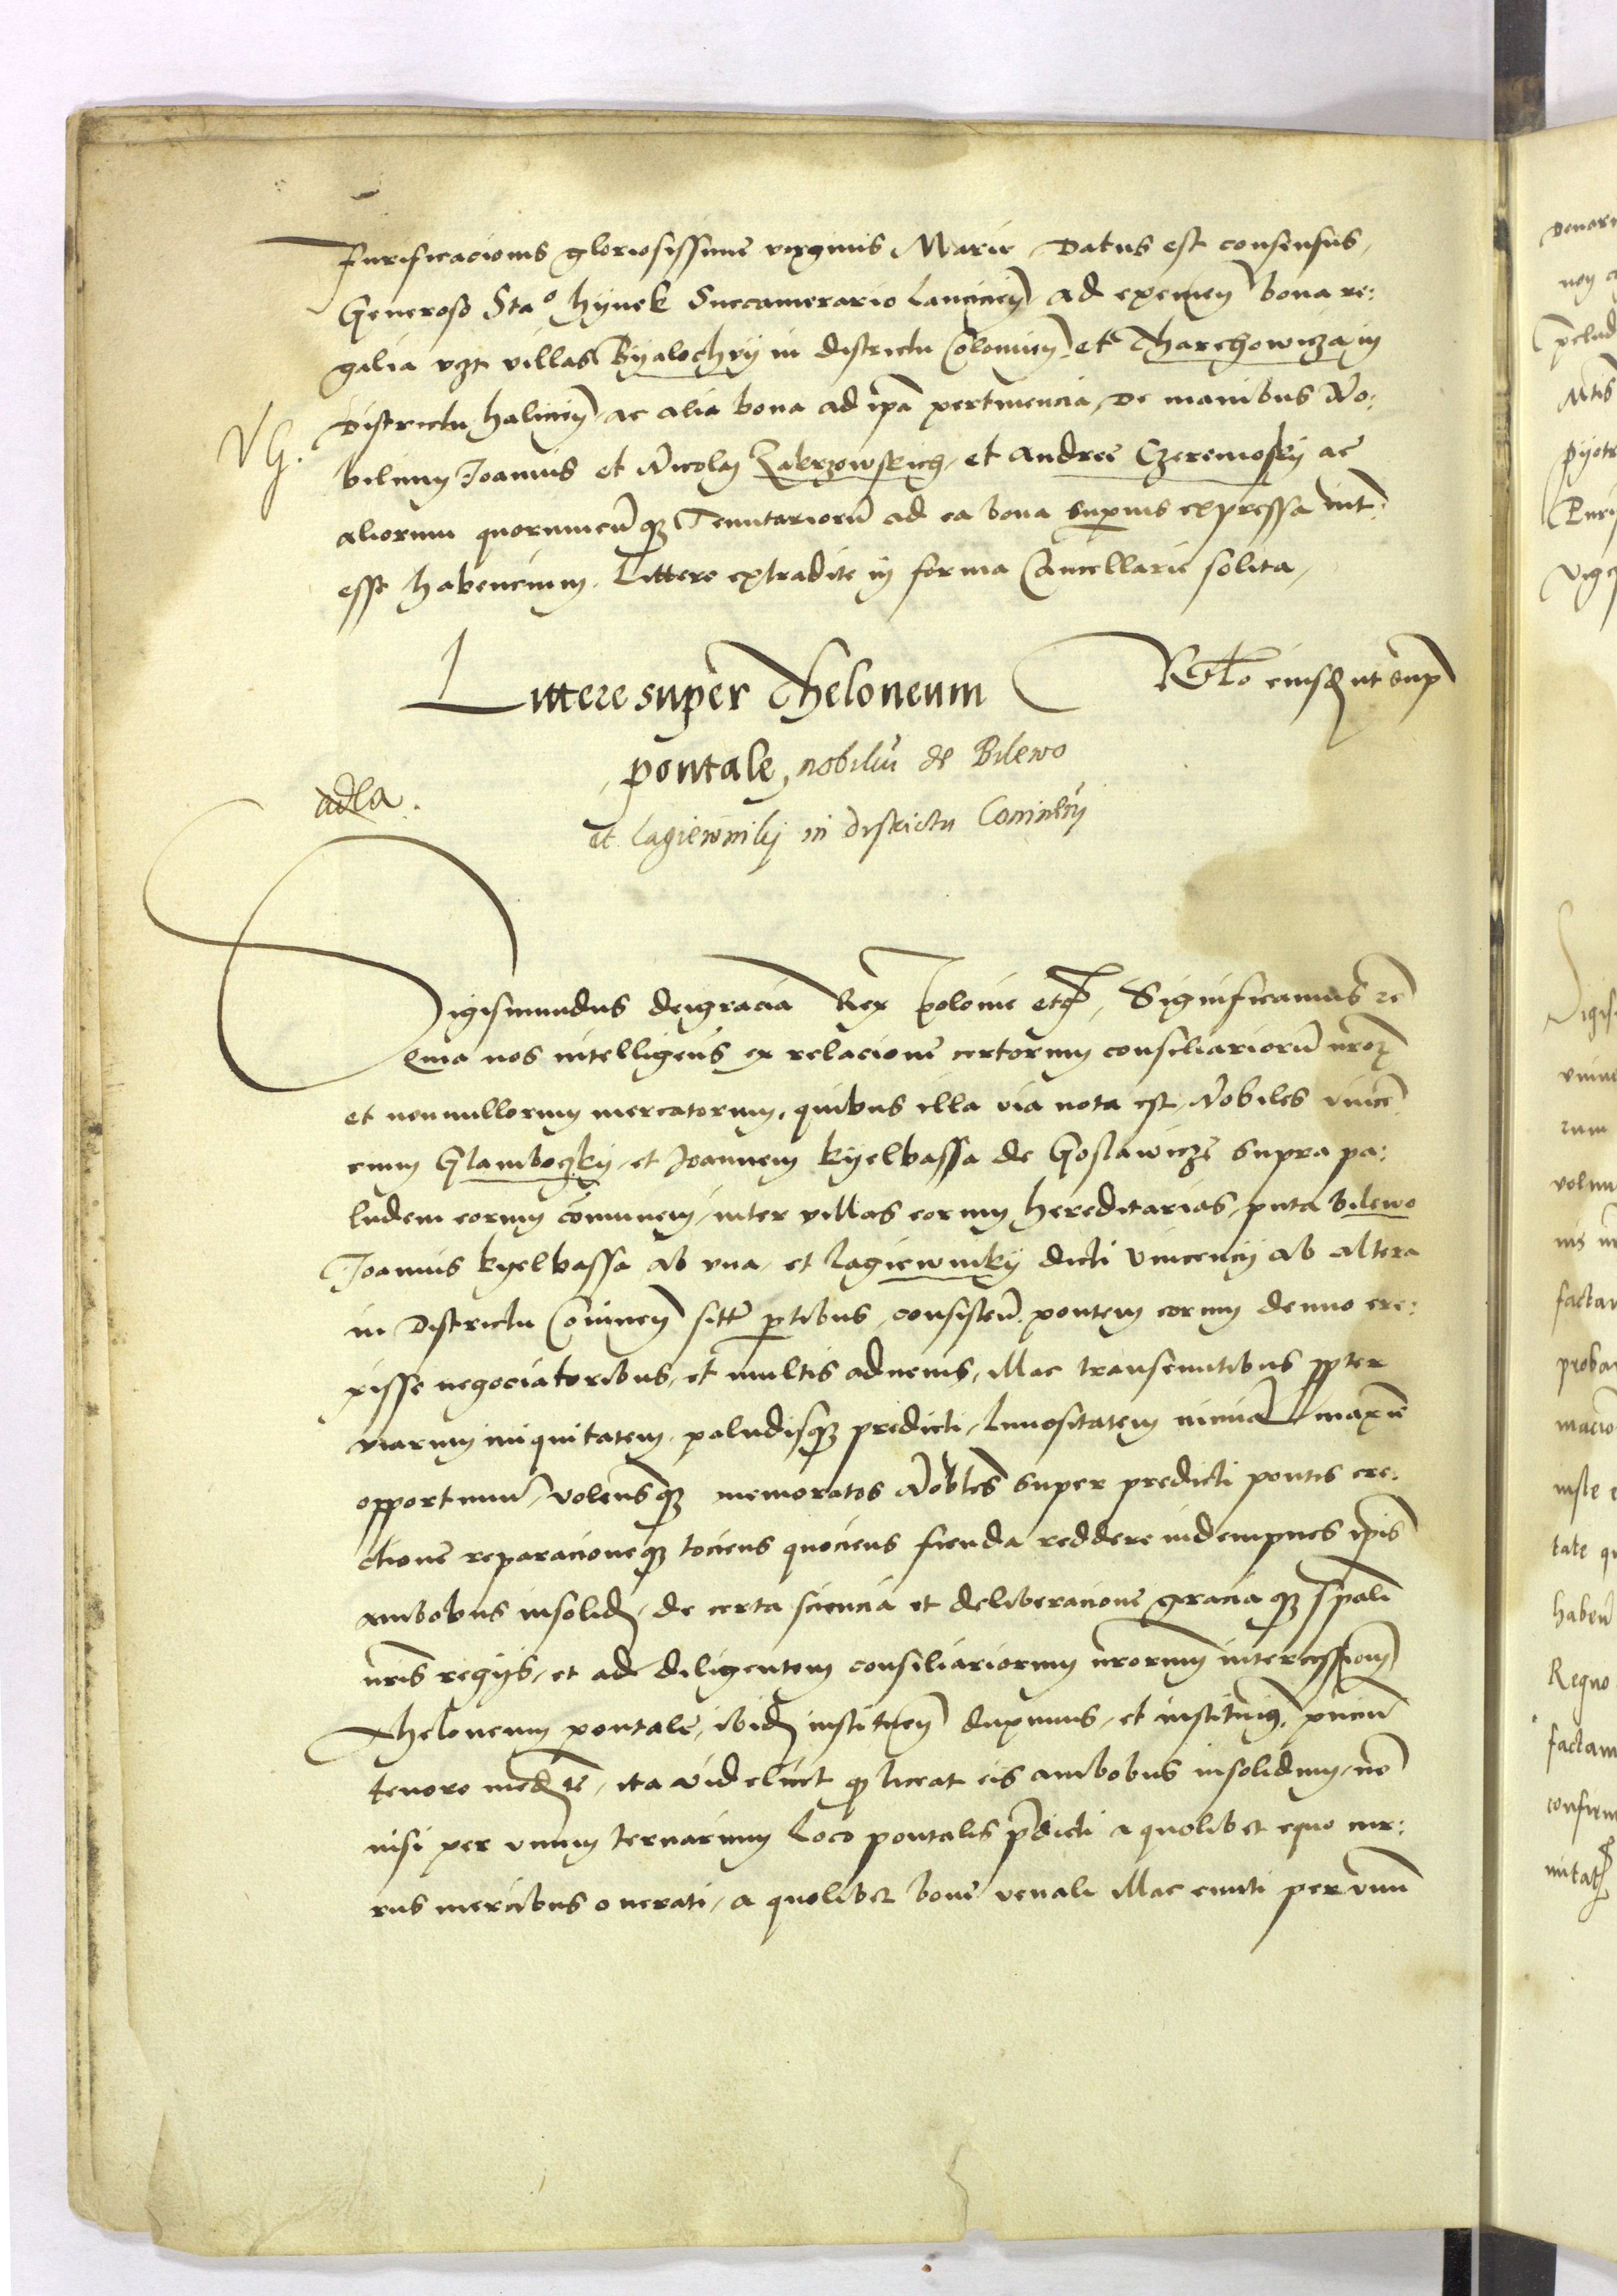 Purificacionis gloriosissime virginis Marie, Datus est consensus,
Generoso Sta° hynek Succamerario Lancicień ad eximeń bona re:
galia vzt villas Byalochry in districtu Colomień et Tharchowicza in
VG.
Districtu halicień ac alia bona ad ipā pertinencia, De manibus No:
bilium Joannis et Nicolaj Zakrzowskich, et Andree Czeremosky ac
aliorum quorumcūqz Tenutariorū ad ea bona superius expressa int:
esse habencium. Littere extradite in forma Cancellarie solita,
Littere super Theloneum
Rlo eiusd ut sup
pontale, nobiliū de Bilewo
adla.
et Lagiewniky in districtu Coninēń
Sigismundus dei gracia Rex Polonie etc, Significamus zc
Quia nos intelligens ex relacione certorum consiliariorū nroz
et nonnullorum mercatorum, quibus illa via nota est, Nobiles vincē
cium Glambocky, et Joannem kyelbassa de Goslawicze supra pa:
ludem eorum cōmunem, inter villas eorum hereditarias, puta bilewo
Joannis kyelbassa ab vna, et Lagiewniky dicti Vincencij ab altera
in Districtu Coninēn sitū ptibus, consisteñ. pontem eorum denuo ere:
xisse negociatoribus, et multis aduenis, illac transeuntibus ppter
viarum iniquitatem, paludisqz predicti, limositatem maxīe
opportunū, volensqz memoratos Nobles super predicti pontis ere:
ctione reparacioneqz tociens quociens fienda reddere indempnes ipis
ambobus insolid, de certa sciencia et deliberacione gracia qz spali
nris regijs, et ad diligentem consiliariorum nrorum intercessionē
Theloneum pontale, ibid instituen duximus, et instituimus pnciū
tenore medte, ita videlicet q liceat eis ambobus insolidum, nō
nisi per vnum ternarium Loco pontalis pdicti a quolibet equo cur:
rus mercibus onerati, a quolibet boue venali illac eunti per vnū